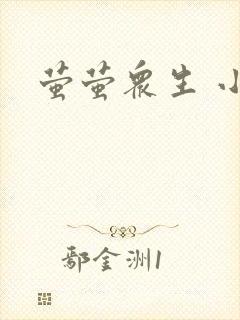 萤萤众生 小
鄢金洲1